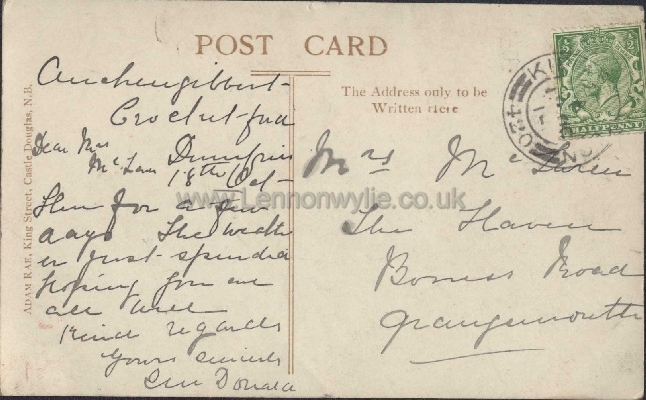 POST CARD
The Address only to be
Written Here
ADAM RAE, King Street, Castle Douglas, N.B.
HALFPENNY
420
Auchengibbert
Crocketford
Dumfries
18th Oct
Dear Mrs
for a few
days The weath
is just splendid
hoping you are
all well
Kind regards
Yours sincerely
Donald
Mrs
The Haven
Boness Road
Grangemouth
www.Lennonwylie.co.uk